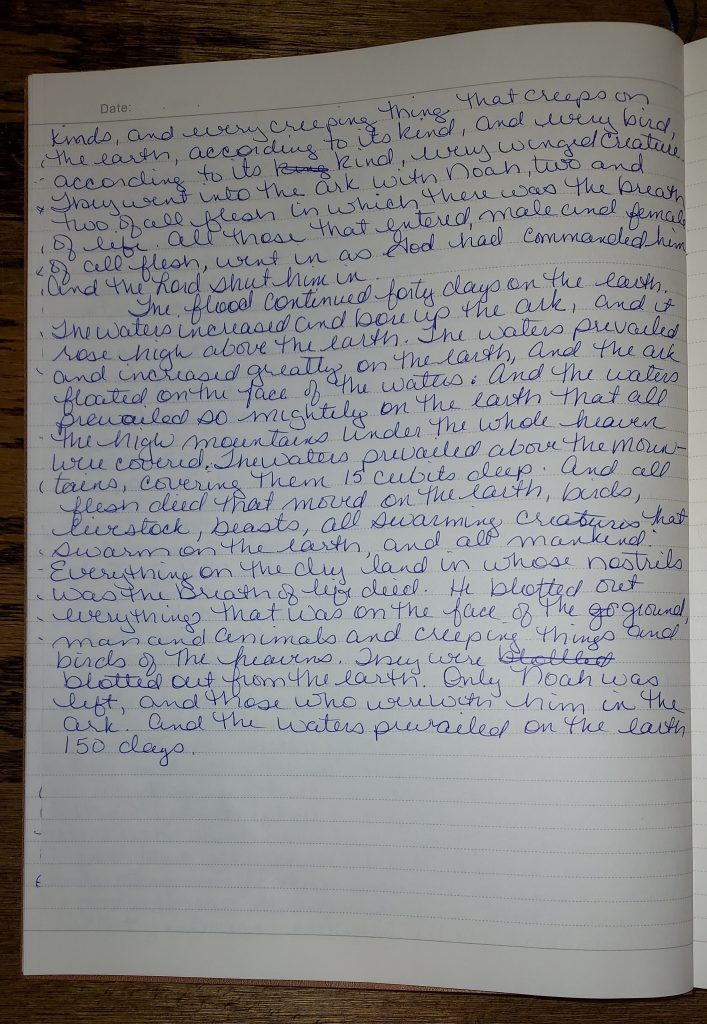 Date:
kinds, and every creeping thing that creeps on
the earth, according to its kind, and every bird,
according to its king kind, every winged creature.
They went into the ark with Noah, two and
two of all flesh in which there was the breath
of life. All those that entered, male and female
of all flesh, went in as God had commanded him
And the Lord shut him in.
The flood continued forty days on the earth.
The waters increased and bore up the ark, and it
rose high above the earth. The waters prevailed
and increased greatly on the earth, and the ark
floated on the face of the waters. And the waters
prevailed so mightely on the earth that all
the high mountains under the whole heaven
were covered. The waters prevailed above the moun-
tains, covering them 15 cubits deep. And all
flesh died that moved on the earth, birds,
livestock, beasts, all swarming creatures that
swarm on the earth, and all mankind.
Everything on the dry land in whose nostrils
was the breath of life died. He blotted out
everything that was on the face of the go ground,
man and animals and creeping things and
birds of the heavens. They were blotted
blotted out from the earth. Only Noah was
left, and those who were with him in the
ark. And the waters prevailed on the earth
150 days.